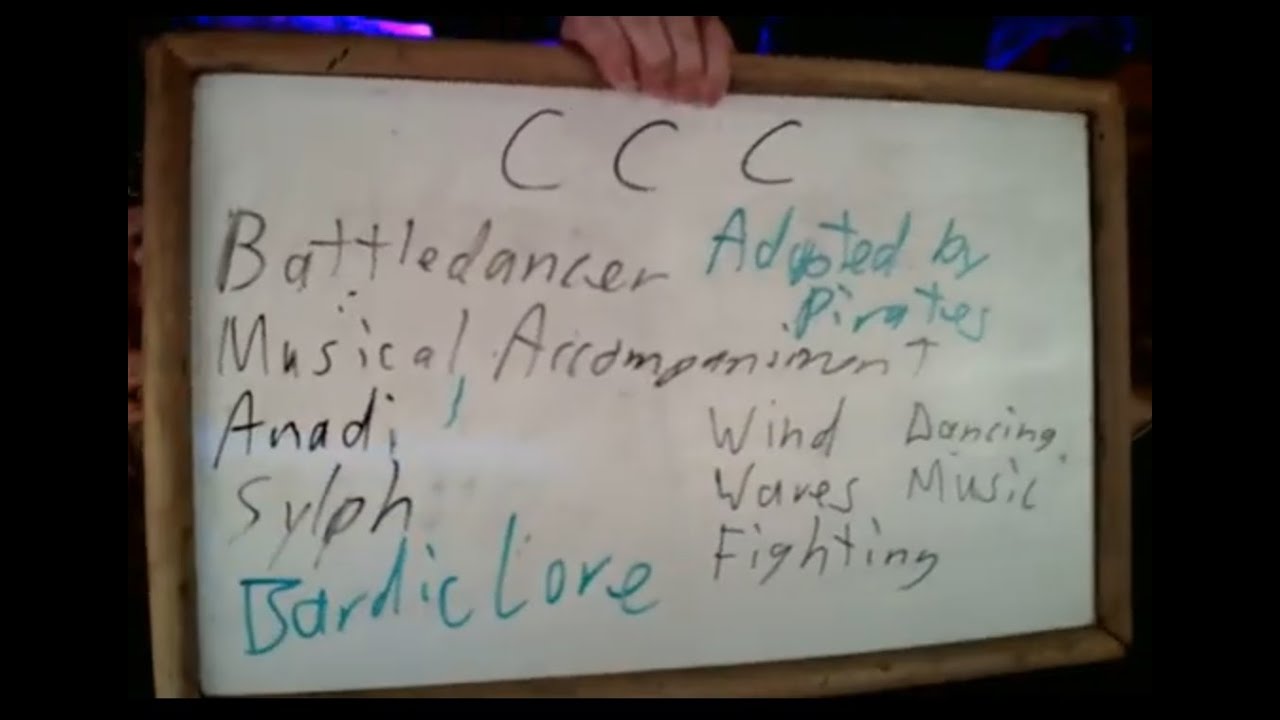 C C C
Battledancer
Musical Accompaniment
Anadi
Sylph
Bardic Lore
Adopted by
Pirates
Wind Dancing
Waves Music
Fighting